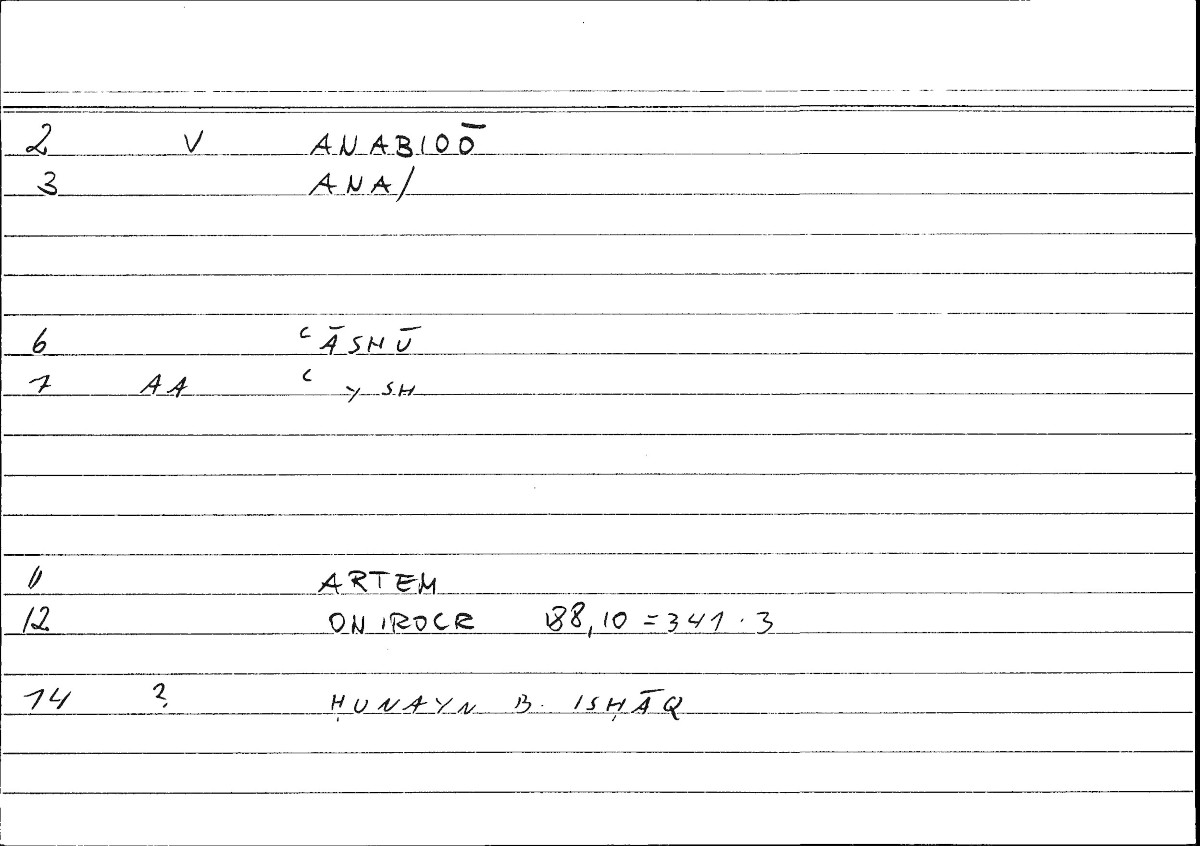 2 V ANABIOŌ
3 ANA/
6 ʿĀSHŪ
7 AA ʿ Y SH
11 ARTEM
12 ONIROCR 188,10 = 341.3
14 ? ḤUNAYN B. ISḤĀQ